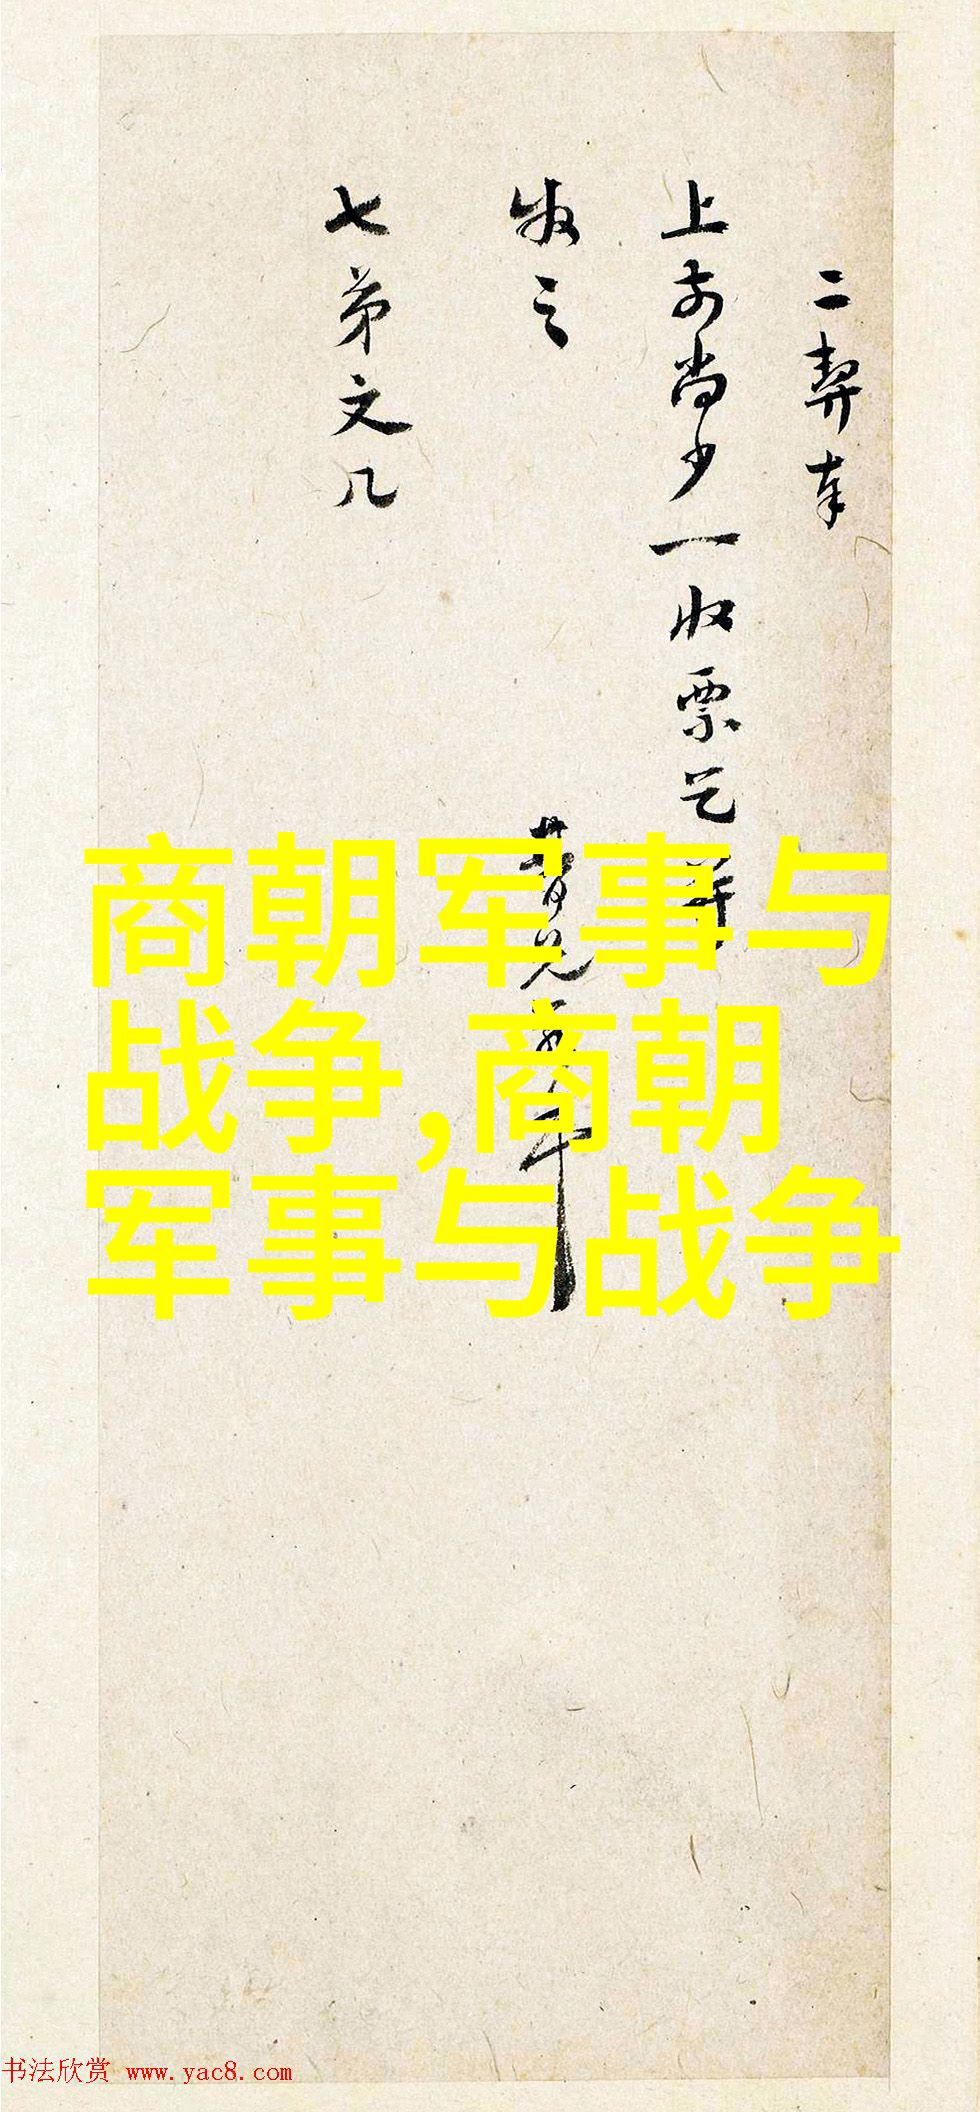 二契奉
上前尚少一收票乞并
发之
七弟文几
昔兄
商朝军事与
战争,商朝
军事与战争
书法欣赏 www.yac8.com